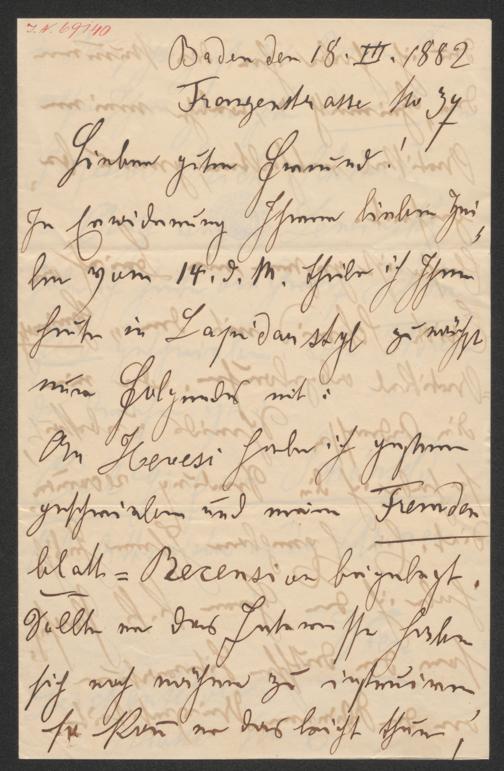 I. N. 69740
Baden den 18. III. 1882
No 37
Lieber guter Freund!
In Erwiderung Ihrer lieben Zei-
len vom 14. d. M. theile ich Ihnen
heute in Lapidarstyl zunächst
nur Folgendes mit:
An Hevesi habe ich gestern
geschrieben und meine Fremden
blatt=Recension beigelegt.
Sollte er das Interesse haben
sich noch näher zu instruiren,
so kann er das leicht thun,